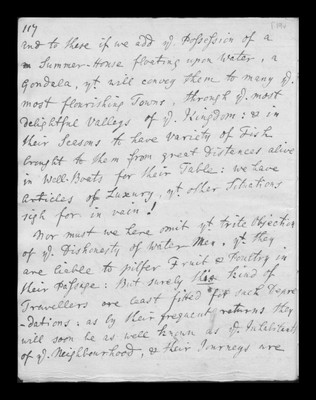 117
and to these if we add yͤ. Possession of a
Summer-House floating upon Water, a
Gondala, yͭ. will convey them to many yͤ.
most flourishing Towns, through yͤ. most
delightful Valleys of yͤ. Kingdom: & in
their Seasons to have Variety of Fish
brought to them from great Distances alive
in Well-Boats for their Table: we have
Articles of Luxury, yͭ. other Situations
sigh for in vain!
Nor must we here omit yͭ. trite Objection
of yͤ. Dishonesty of Water Men, yͭ. they
are liable to pilfer Fruit & Poultry in
their Passage: But surely this kind of
Travellers are least fitted for such Depre
-dations: as by their frequent returns they
will soon be as well known as yͤ. Inhabitants
of yͤ. Neighbourhood, & their Journeys are